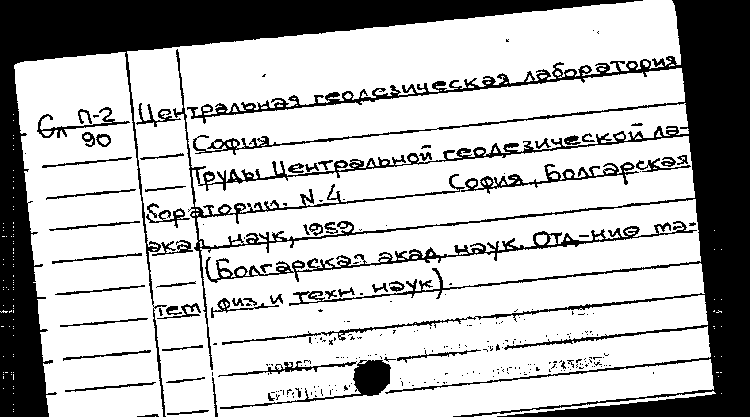 Центральная геодезическая лаборатория
Сл П-2
90
София.
Труды Центральной геодезической ла-
боратории. N.4 София, Болгарская
акад. наук, 1959.
(Болгарская акад. наук. Отд-ние ма-
тем., физ. и техн. наук).